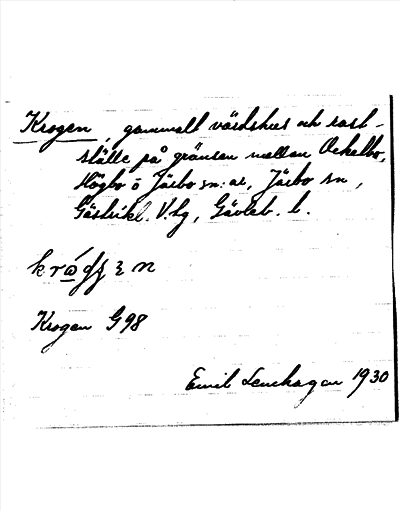 Krogen, gammalt värdshus och rast-
ställe på gränsen mellan Ockelbo,
Högbo o Järbo sn:ar, Järbo sn,
Gästrikl. V. hg, Gävleb. l.
Krogen G98
Emil Lenhagen 1930